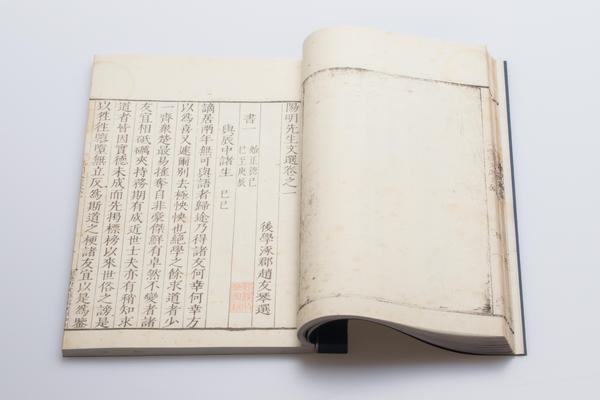 陽明先生文選卷之一
後學涿郡趙友琴選
書一 始正德己
巳至庚辰
與辰中諸生 己巳
謫居兩年無可與語者歸途乃得諸友何幸何幸方
以為喜又遽爾別去極怏怏也絕學之餘求道者少
一齊衆楚最易搖奪自非豪傑鮮有卓然不變者諸
友宜相砥礪夾持務期有成近世士夫亦有稍知求
道者皆因實德未成而先揭標榜以來世俗之謗是
以往往隳墮無立反為斯道之梗諸友宜以是為鑒